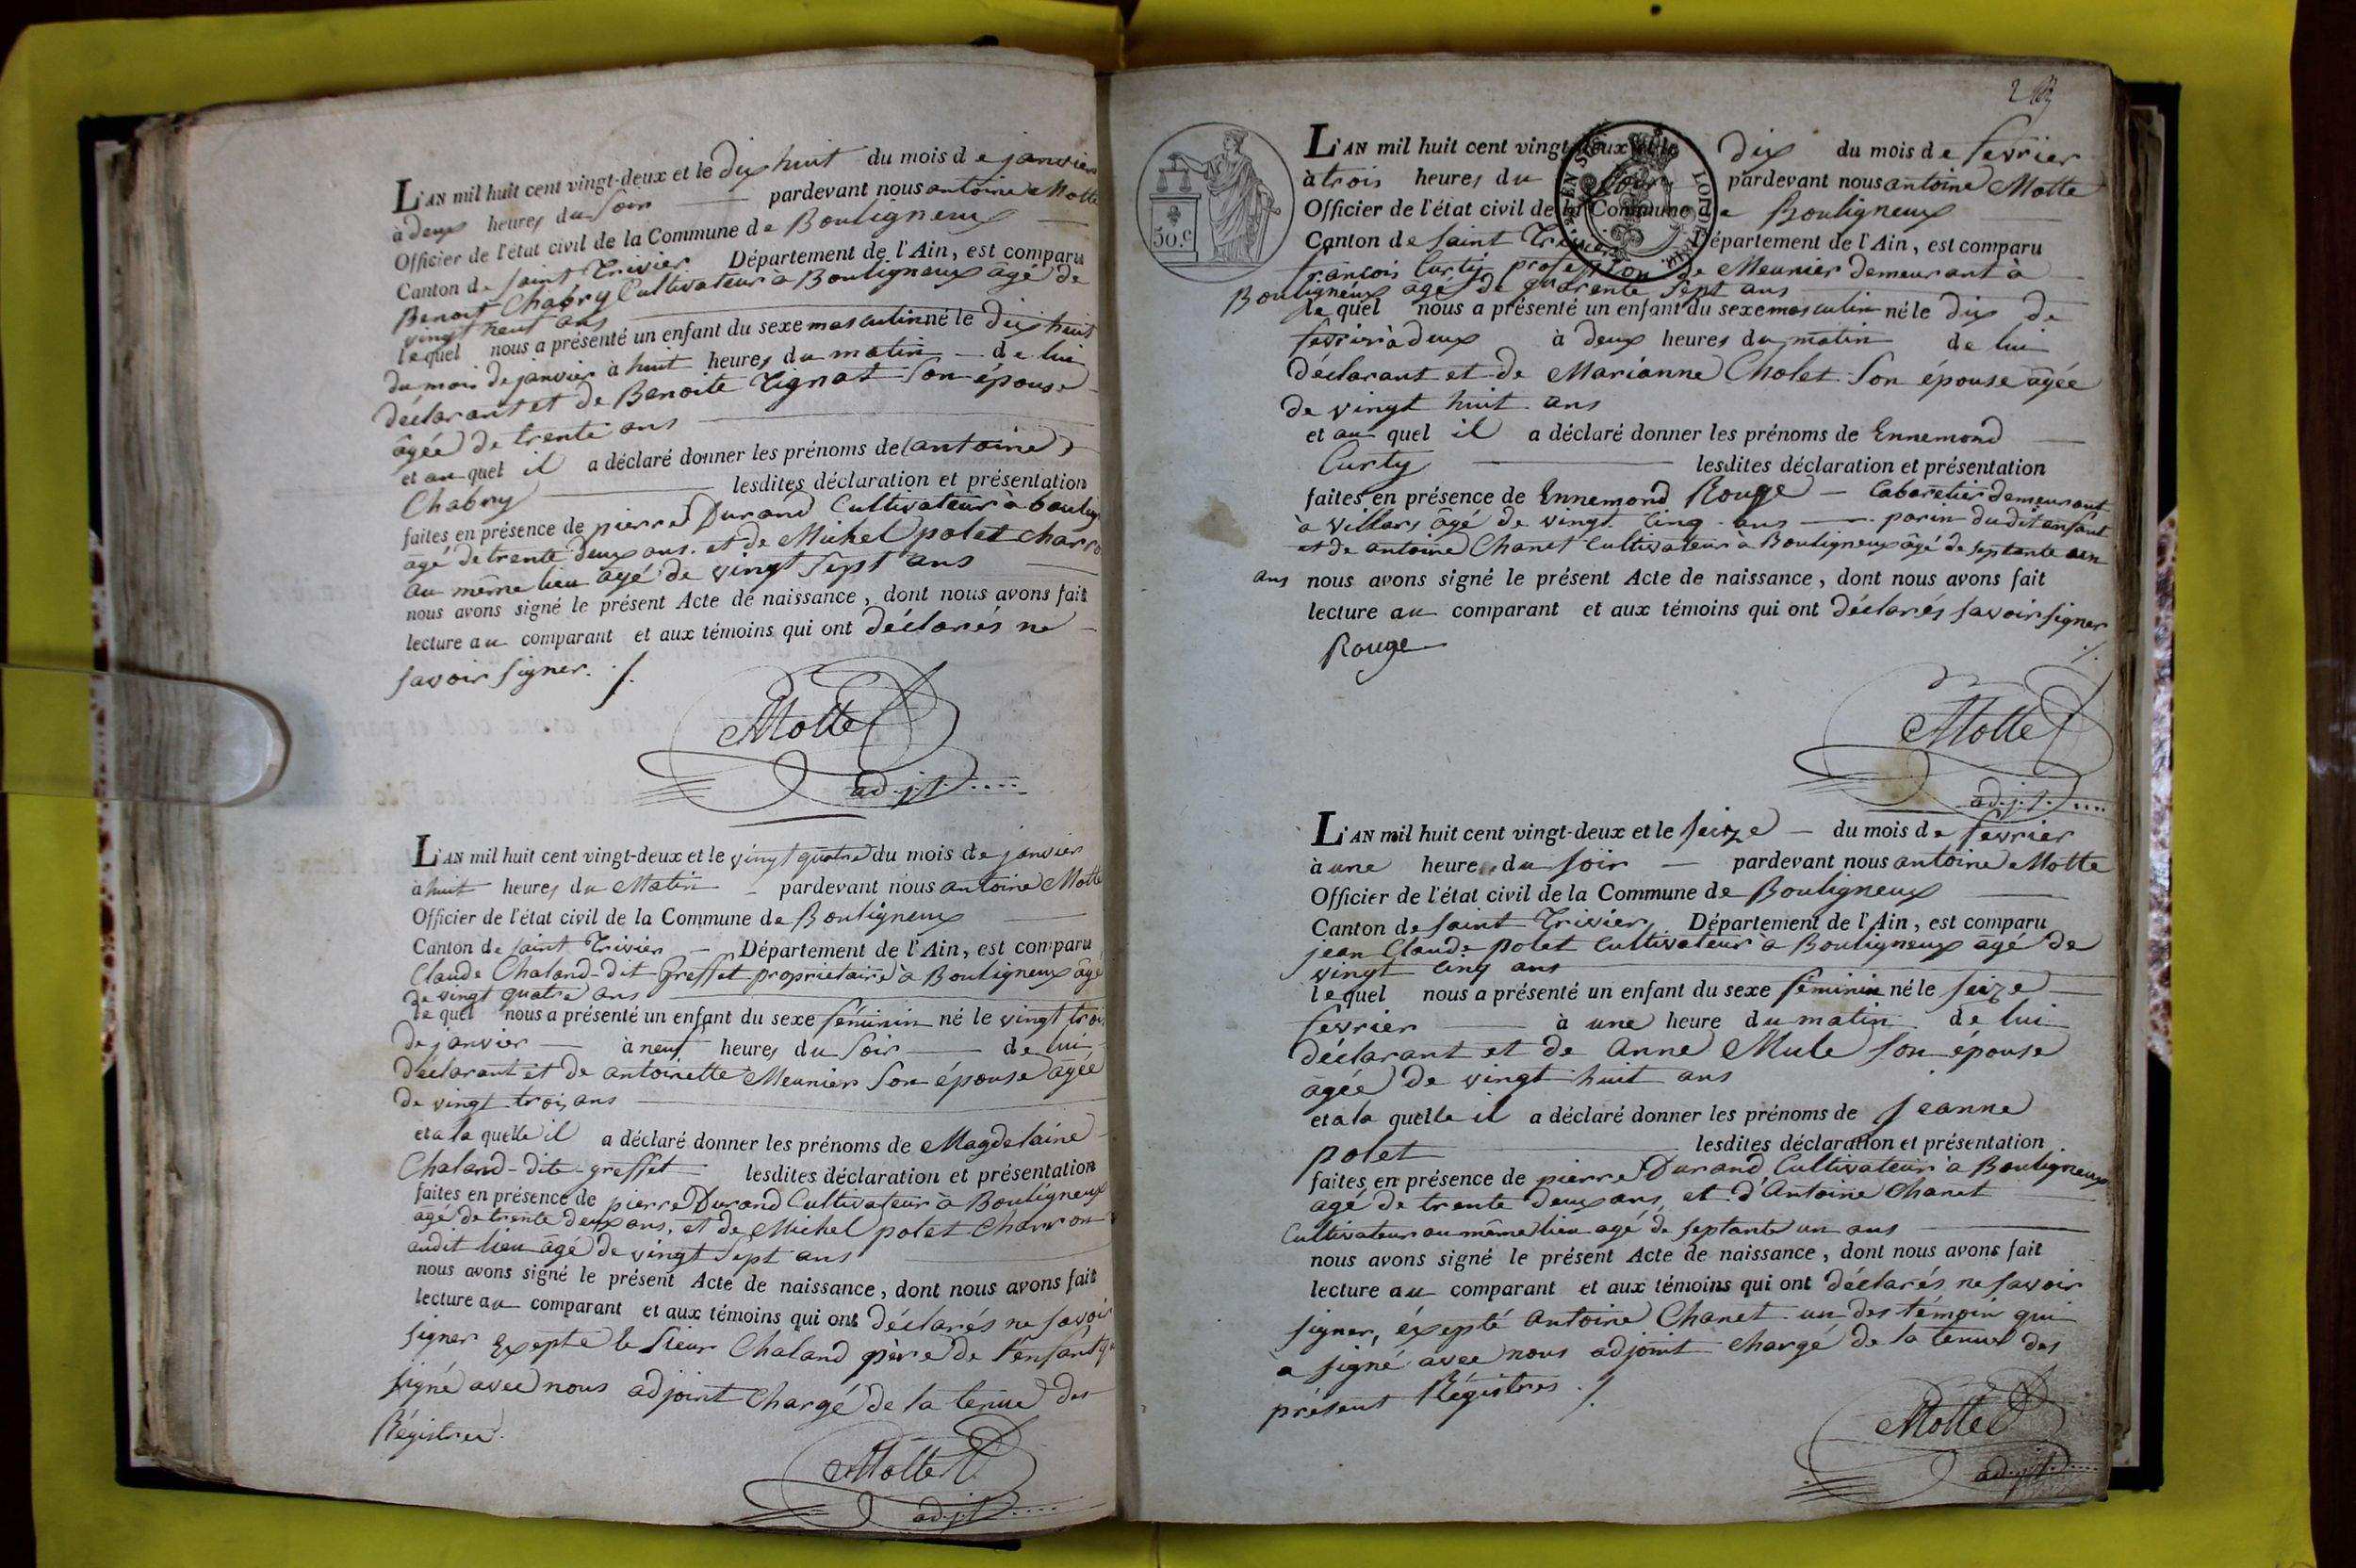 L'AN mil huit cent vingt-deux et le dix huit du mois de janvier
à deux heures du soir pardevant nous antoine Motte
Officier de l'état civil de la Commune de Bouligneux
Canton de saint Trivier Département de l'Ain, est comparu
Benoit Chabry Cultivateur à Bouligneux âgé de
vingt neuf ans
lequel nous a présenté un enfant du sexe masculin né le dix huit
du mois de janvier à huit heures du matin de lui
déclarant et de Benoite Tignat son épouse
âgée de trente ans
et au quel il a déclaré donner les prénoms de antoine
Chabry lesdites déclaration et présentation
faites en présence de pierre Durand Cultivateur à boulig
agé de trente deux ans. et de Michel polet charro
au même lieu âgé de vingt sept ans
nous avons signé le présent Acte de naissance, dont nous avons fait
lecture au comparant et aux témoins qui ont déclarés ne
savoir signer. /.
Motte
adjt.....
L'AN mil huit cent vingt-deux et le vingt quatre du mois de janvier
à huit heures du Matin pardevant nous antoine Motte
Officier de l'état civil de la Commune de Bouligneux
Canton de saint Trivier Département de l'Ain, est comparu
Claude Chaland-dit-Greffet propriétaire à Bouligneux âgé
de vingt quatre ans
lequel nous a présenté un enfant du sexe féminin né le vingt trois
de janvier à neuf heures du soir de lui
déclarant et de antoinette Meunier son épouse âgée
de vingt trois ans
et a la quelle il a déclaré donner les prénoms de Magdelaine
Chaland-dite-greffet lesdites déclaration et présentation
faites en présence de pierre Durand Cultivateur à Bouligneux
agé de trente deux ans, et de Michel polet Charron
audit lieu âgé de vingt sept ans
nous avons signé le présent Acte de naissance, dont nous avons fait
lecture au comparant et aux témoins qui ont déclarés ne savoir
signer Exepté le sieur Chaland père de l'enfant qu
signé avec nous adjoint Chargé de la tenue des
Régistres.
Motte
adjt.....
263
50.c
L'AN mil huit cent vingt-deux et le dix du mois de fevrier
à trois heures du soir pardevant nous antoine Motte
Officier de l'état civil de la Commune de Bouligneux
Canton de saint Trivier Département de l'Ain, est comparu
françois Curty profession de Meunier demeurant à
Bouligneux agé de quarente sept ans
lequel nous a présenté un enfant du sexe masculin né le dix de
fevrier à deux à deux heures du matin de lui
déclarant et de Marianne Cholet son épouse âgée
de vingt huit ans
et au quel il a déclaré donner les prénoms de Ennemond
Curty lesdites déclaration et présentation
faites en présence de Ennemond Rouge Cabaretier demeurant
à Villars âgé de vingt cinq ans parin du dit enfant
et de antoine Chanet Cultivateur à Bouligneux âgé de septante un
ans nous avons signé le présent Acte de naissance, dont nous avons fait
lecture au comparant et aux témoins qui ont déclarés savoir signer
Rouge /.
Motte
adjt.....
L'AN mil huit cent vingt-deux et le seize du mois de fevrier
à une heure du soir pardevant nous antoine Motte
Officier de l'état civil de la Commune de Bouligneux
Canton de saint Trivier Département de l'Ain, est comparu
jean Claude polet cultivateur à Bouligneux agé de
vingt cinq ans
lequel nous a présenté un enfant du sexe féminin né le seize
fevrier à une heure du matin de lui
déclarant et de anne Mule son épouse
âgée de vingt huit ans
et a la quelle il a déclaré donner les prénoms de Jeanne
polet lesdites déclaration et présentation
faites en présence de pierre Durand Cultivateur à Bouligneux
agé de trente deux ans, et d'Antoine Chanet
Cultivateur au même lieu agé de septante un ans
nous avons signé le présent Acte de naissance, dont nous avons fait
lecture au comparant et aux témoins qui ont déclarés ne savoir
signer, éxepté antoine Chanet un des témoin qui
a signé avec nous adjoint chargé de la tenue des
présent Régistres. /.
Motte
adjt.....